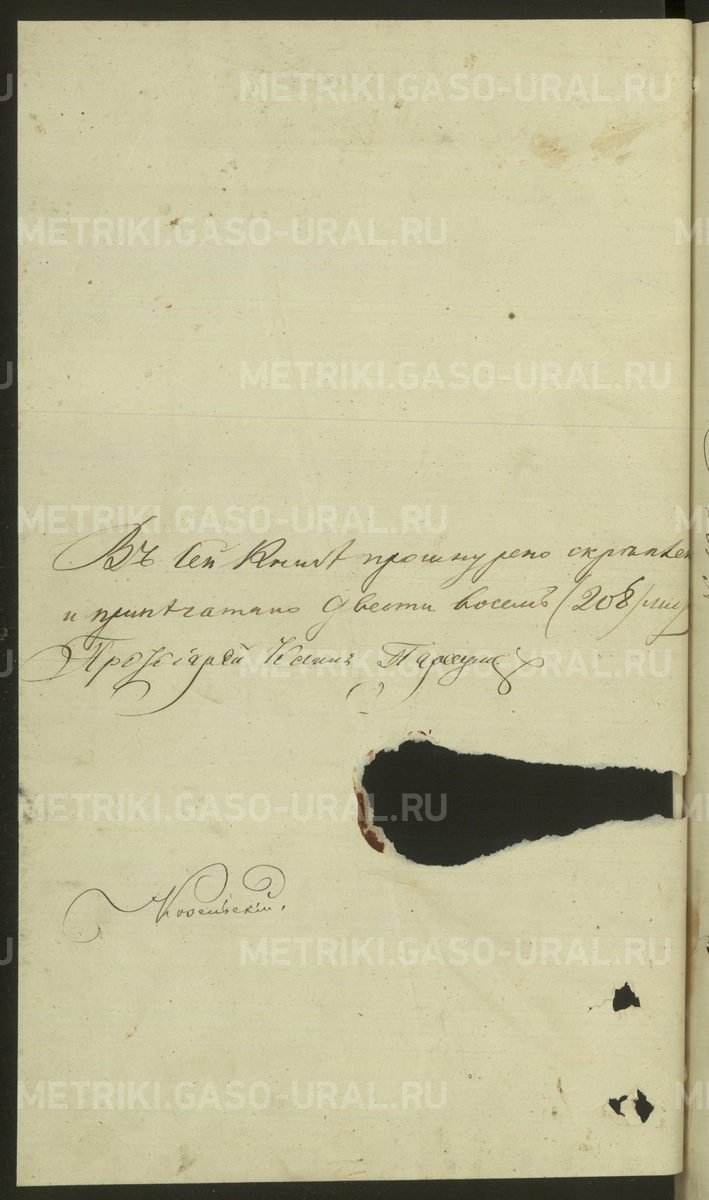 METRIKI.GASO-URAL.RU
METRIKI.GASO-URAL.RU
METRIKI.GASO-URAL.RU
METRIKI.GASO-URAL.RU
Въ сей книгѣ прошнурено скрѣплен
и припѣчатано двести восемь (208) лис
METRIKI.GASO-URAL.RU
Іоаннъ
METRIKI.GASO-URAL.RU
METRIKI.GASO-URAL.RU
METRIKI.GASO-URAL.RU